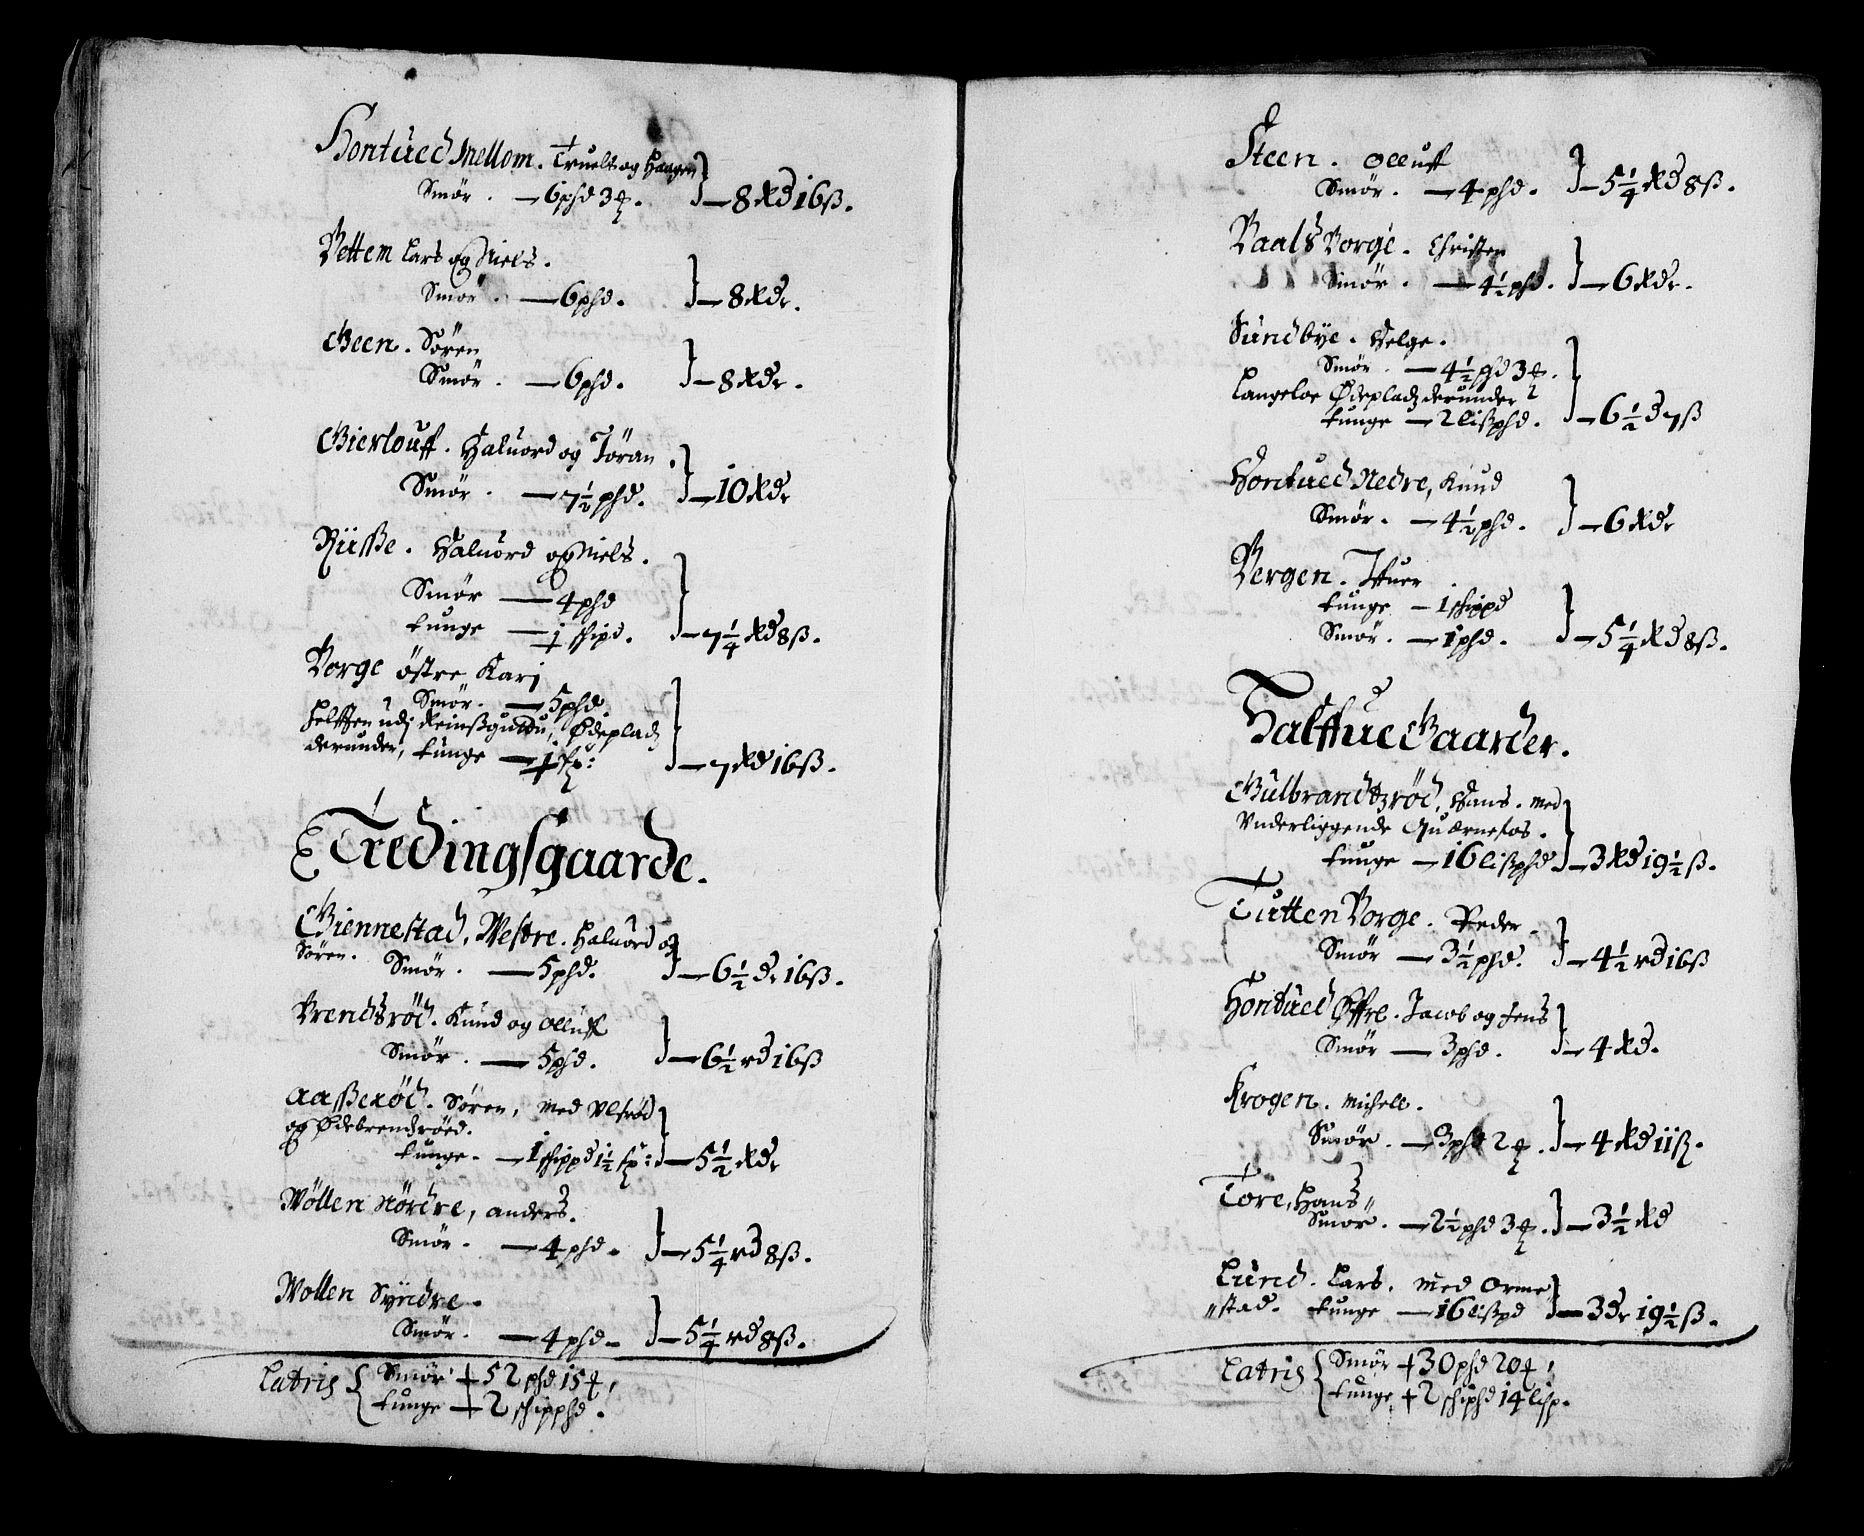 Hontued Mellom. Truels og Haagen
Smør. — 6 phd 3 ℔. } — 8 Rd 16 ß.
Vettem Lars og Niels.
Smør. — 6 phd. } — 8 Rdr.
Geen. Søren
Smør. — 6 phd. } — 8 Rdr.
Gierlouff. Haluord og Jöran.
Smør. — 7½ phd. } — 10 Rdr
Rüsse. Haluord og Niels.
Smør — 4 phd
tunge — 1 skipd. } — 7¼ Rd 8 ß.
Borge östre Karj
Smør. — 5 phd
helfften udj Ödeplads
derunder, tunge — } — 7 Rd 16 ß.
Tredingsgaarde.
Giennestad, Westre. Haluord og
Søren. Smør. — 5 phd. } — 6½ dr 16 ß.
Brendsröd. Knud og Olluff
Smør. — 5 phd. } — 6½ rd 16 ß
Aasseröd. Sören, med Ulfröd
og Ödebrendsröed.
tunge. — 1 skippd 1½ } — 5½ Rdr
Möllen Nördre, anders.
Smør. — 4 phd. } — 5¼ rd 8 ß.
Mollen Syndre.
Smør. — 4 phd — } — 5¼ rd 8 ß.
Latris { Smør + 52 phd 15 ℔,
tunge + 2 skipphd.
Steen. Olluff
Smør. — 4 phd. } — 5¼ Rd 8 ß.
Baals Borge. Christen
Smør. — 4½ phd. } — 6 Rdr.
Sundbye. Helge.
Smør. — 4½ phd 3 ℔.
Langeloe Ödeplads derunder
tunge — 2 lißphd. } — 6½ d 7 ß
Hontued Nedre, Knud
Smør. — 4½ phd. } — 6 Rdr
Bergen. Iffuer
tunge — 1 skippd
Smør. — 1 phd. } — 5¼ Rd 8 ß.
Halffue Gaarder.
Gulbrandtzröd, Hans. med
Underliggende Quærnefos.
tunge — 16 lißphd } — 3 Rd 19½ ß.
Tutten Borge. Peder.
Smør — 3½ phd. } — 4½ rd 16 ß
Hontued Öffre. Jacob og Jens
Smør — 3 phd. } — 4 Rd.
Krogen. Michell.
Smør. — 3 phd 2 ℔. } — 4 Rd 11 ß.
Tore, Hans
Smør. — 2½ phd 3 ℔. } — 3½ Rd
Lund. Lars. med Orme
„stad. tunge — 16 lißpd } — 3 dr 19½ ß.
Latris { Smør + 30 phd 20 ℔,
tunge + 2 skiphd 14 lisp.